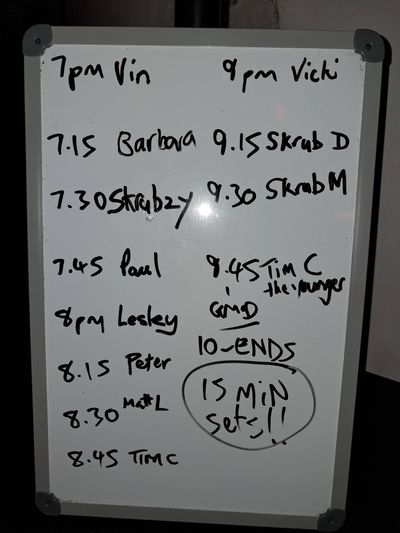 7pm Vin
7.15 Barbara
7.30 Skrubzy
7.45 Paul
8pm Lesley
8.15 Peter
8.30 Matt L
8.45 Tim C
9pm Vicki
9.15 Skrub D
9.30 Skrub M
9.45 Tim C
the younger
10-ENDS
15 MiN
sets!!